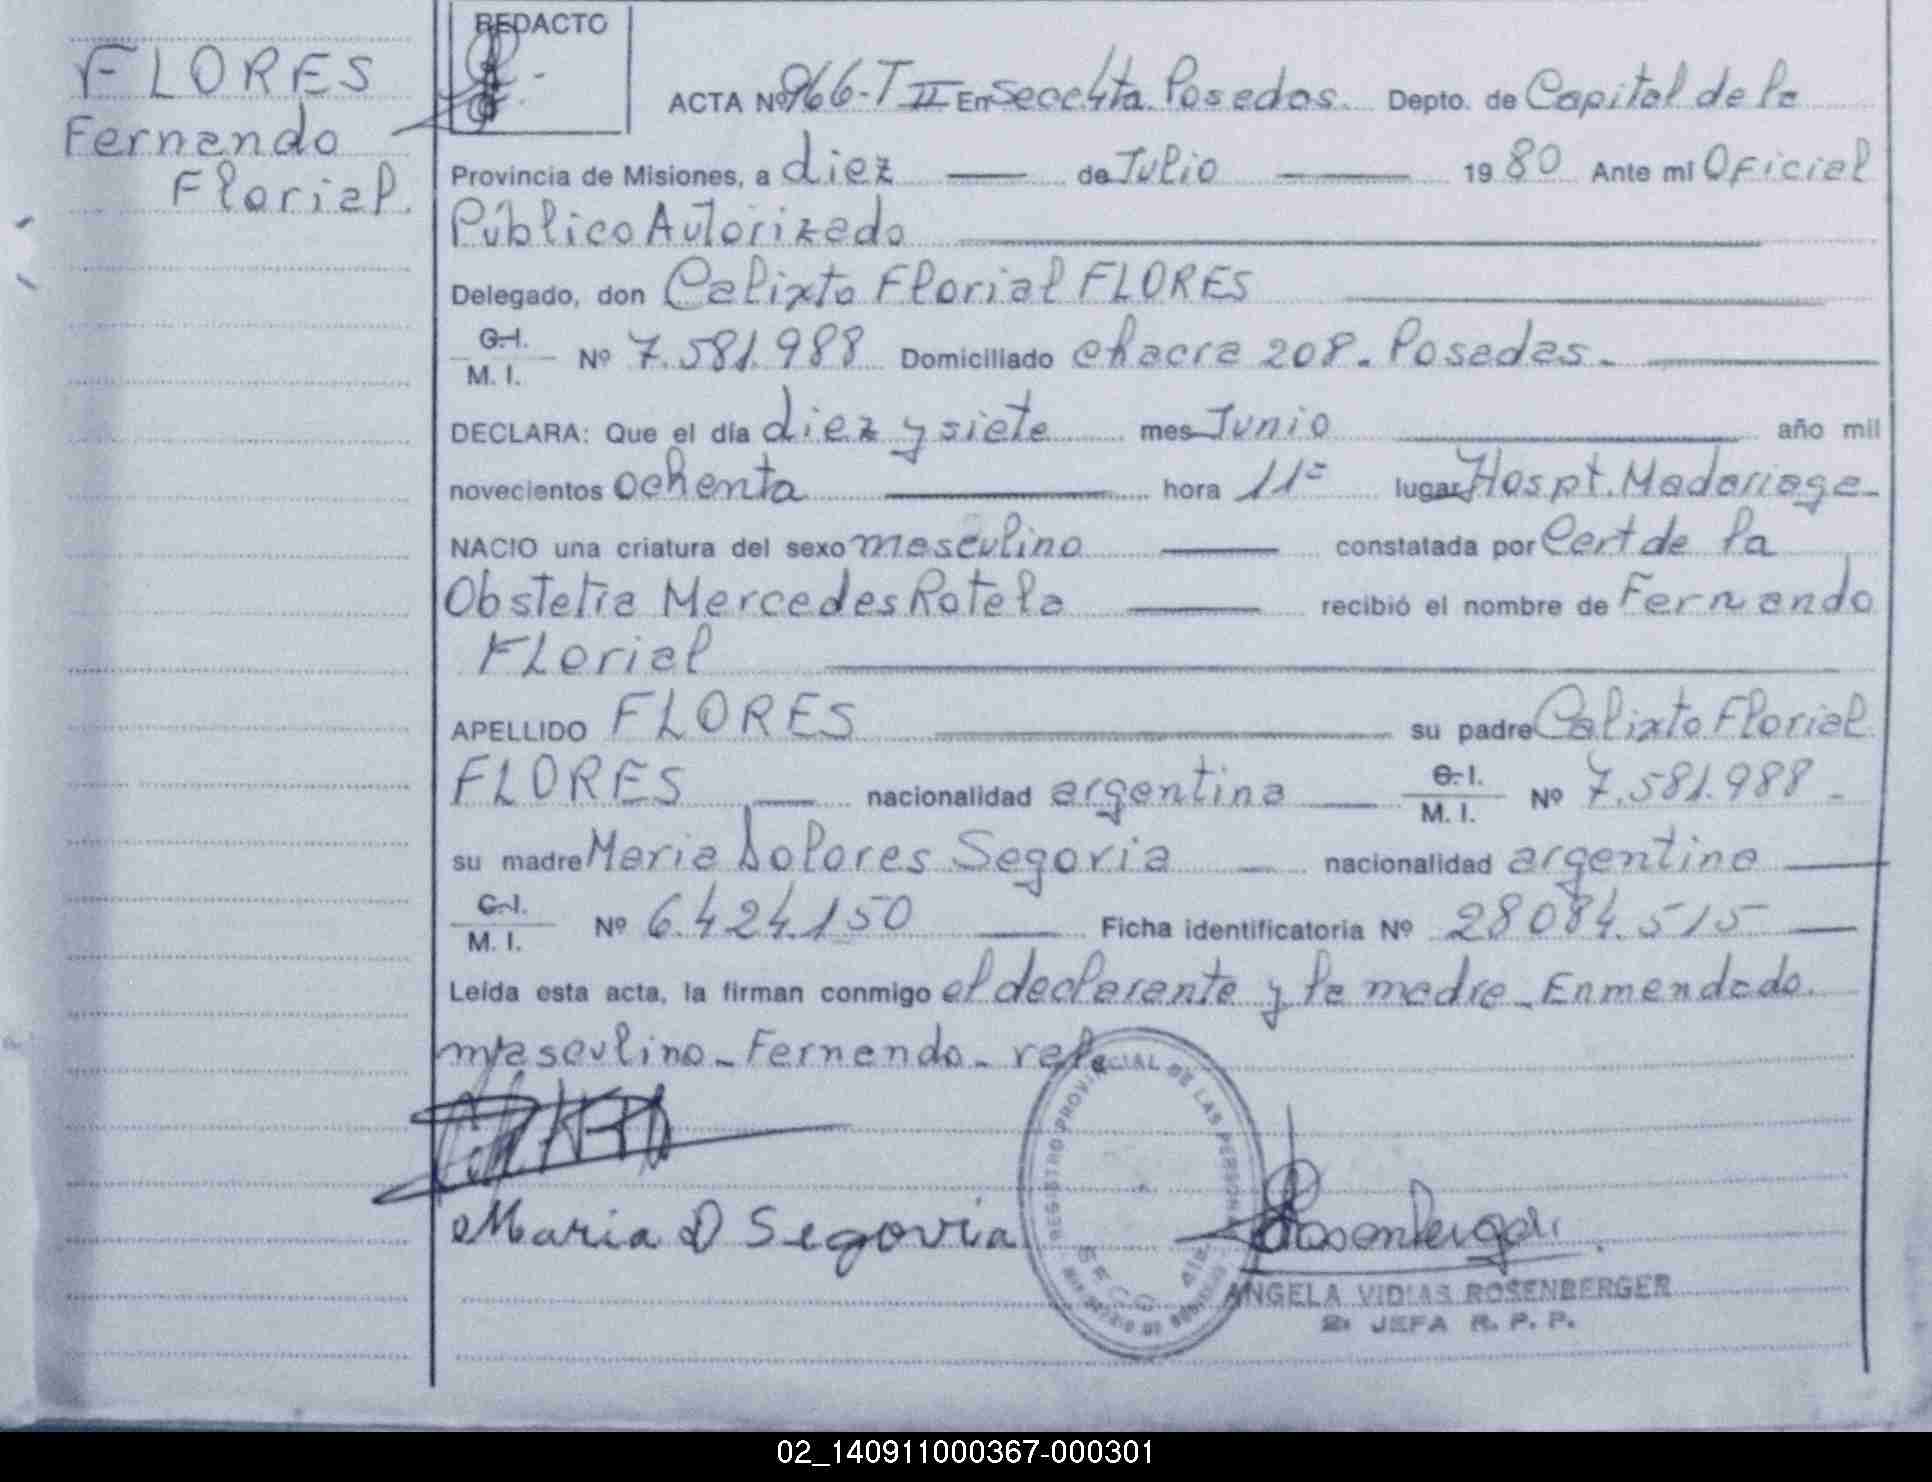 FLORES
Fernando
Florial.
REDACTO
ACTA Nº 966-T II En Secc 4ta. Posadas. Depto. de Capital de la
Provincia de Misiones, a diez de Julio 1980 Ante mi Oficial
Público Autorizado
Delegado, don Calixto Florial FLORES
C.I. M. I. Nº 7.581.988 Domiciliado chacra 208. Posadas.
DECLARA: Que el día diez y siete mes Junio año mil
novecientos ochenta hora 11= lugar Hospt. Madariaga
NACIO una criatura del sexo masculino constatada por Cert de la
Obstetia Mercedes Rotela recibió el nombre de Fernando
FLorial
APELLIDO FLORES su padre Calixto Florial
FLORES nacionalidad argentina C.I. M. I. Nº 7.581.988
su madre Maria Dolores Segovia nacionalidad argentina
C.I. M. I. Nº 6.424.150 Ficha identificatoria Nº 28084.515
Leída esta acta, la firman conmigo el declarante y la madre - Enmendado.
masculino - Fernando -
REGISTRO PROVINCIAL DE LAS PERSONAS
Maria D Segovia
Rosenberger
ANGELA VIDIAS ROSENBERGER
2: JEFA R. P. P.
02_140911000367-000301